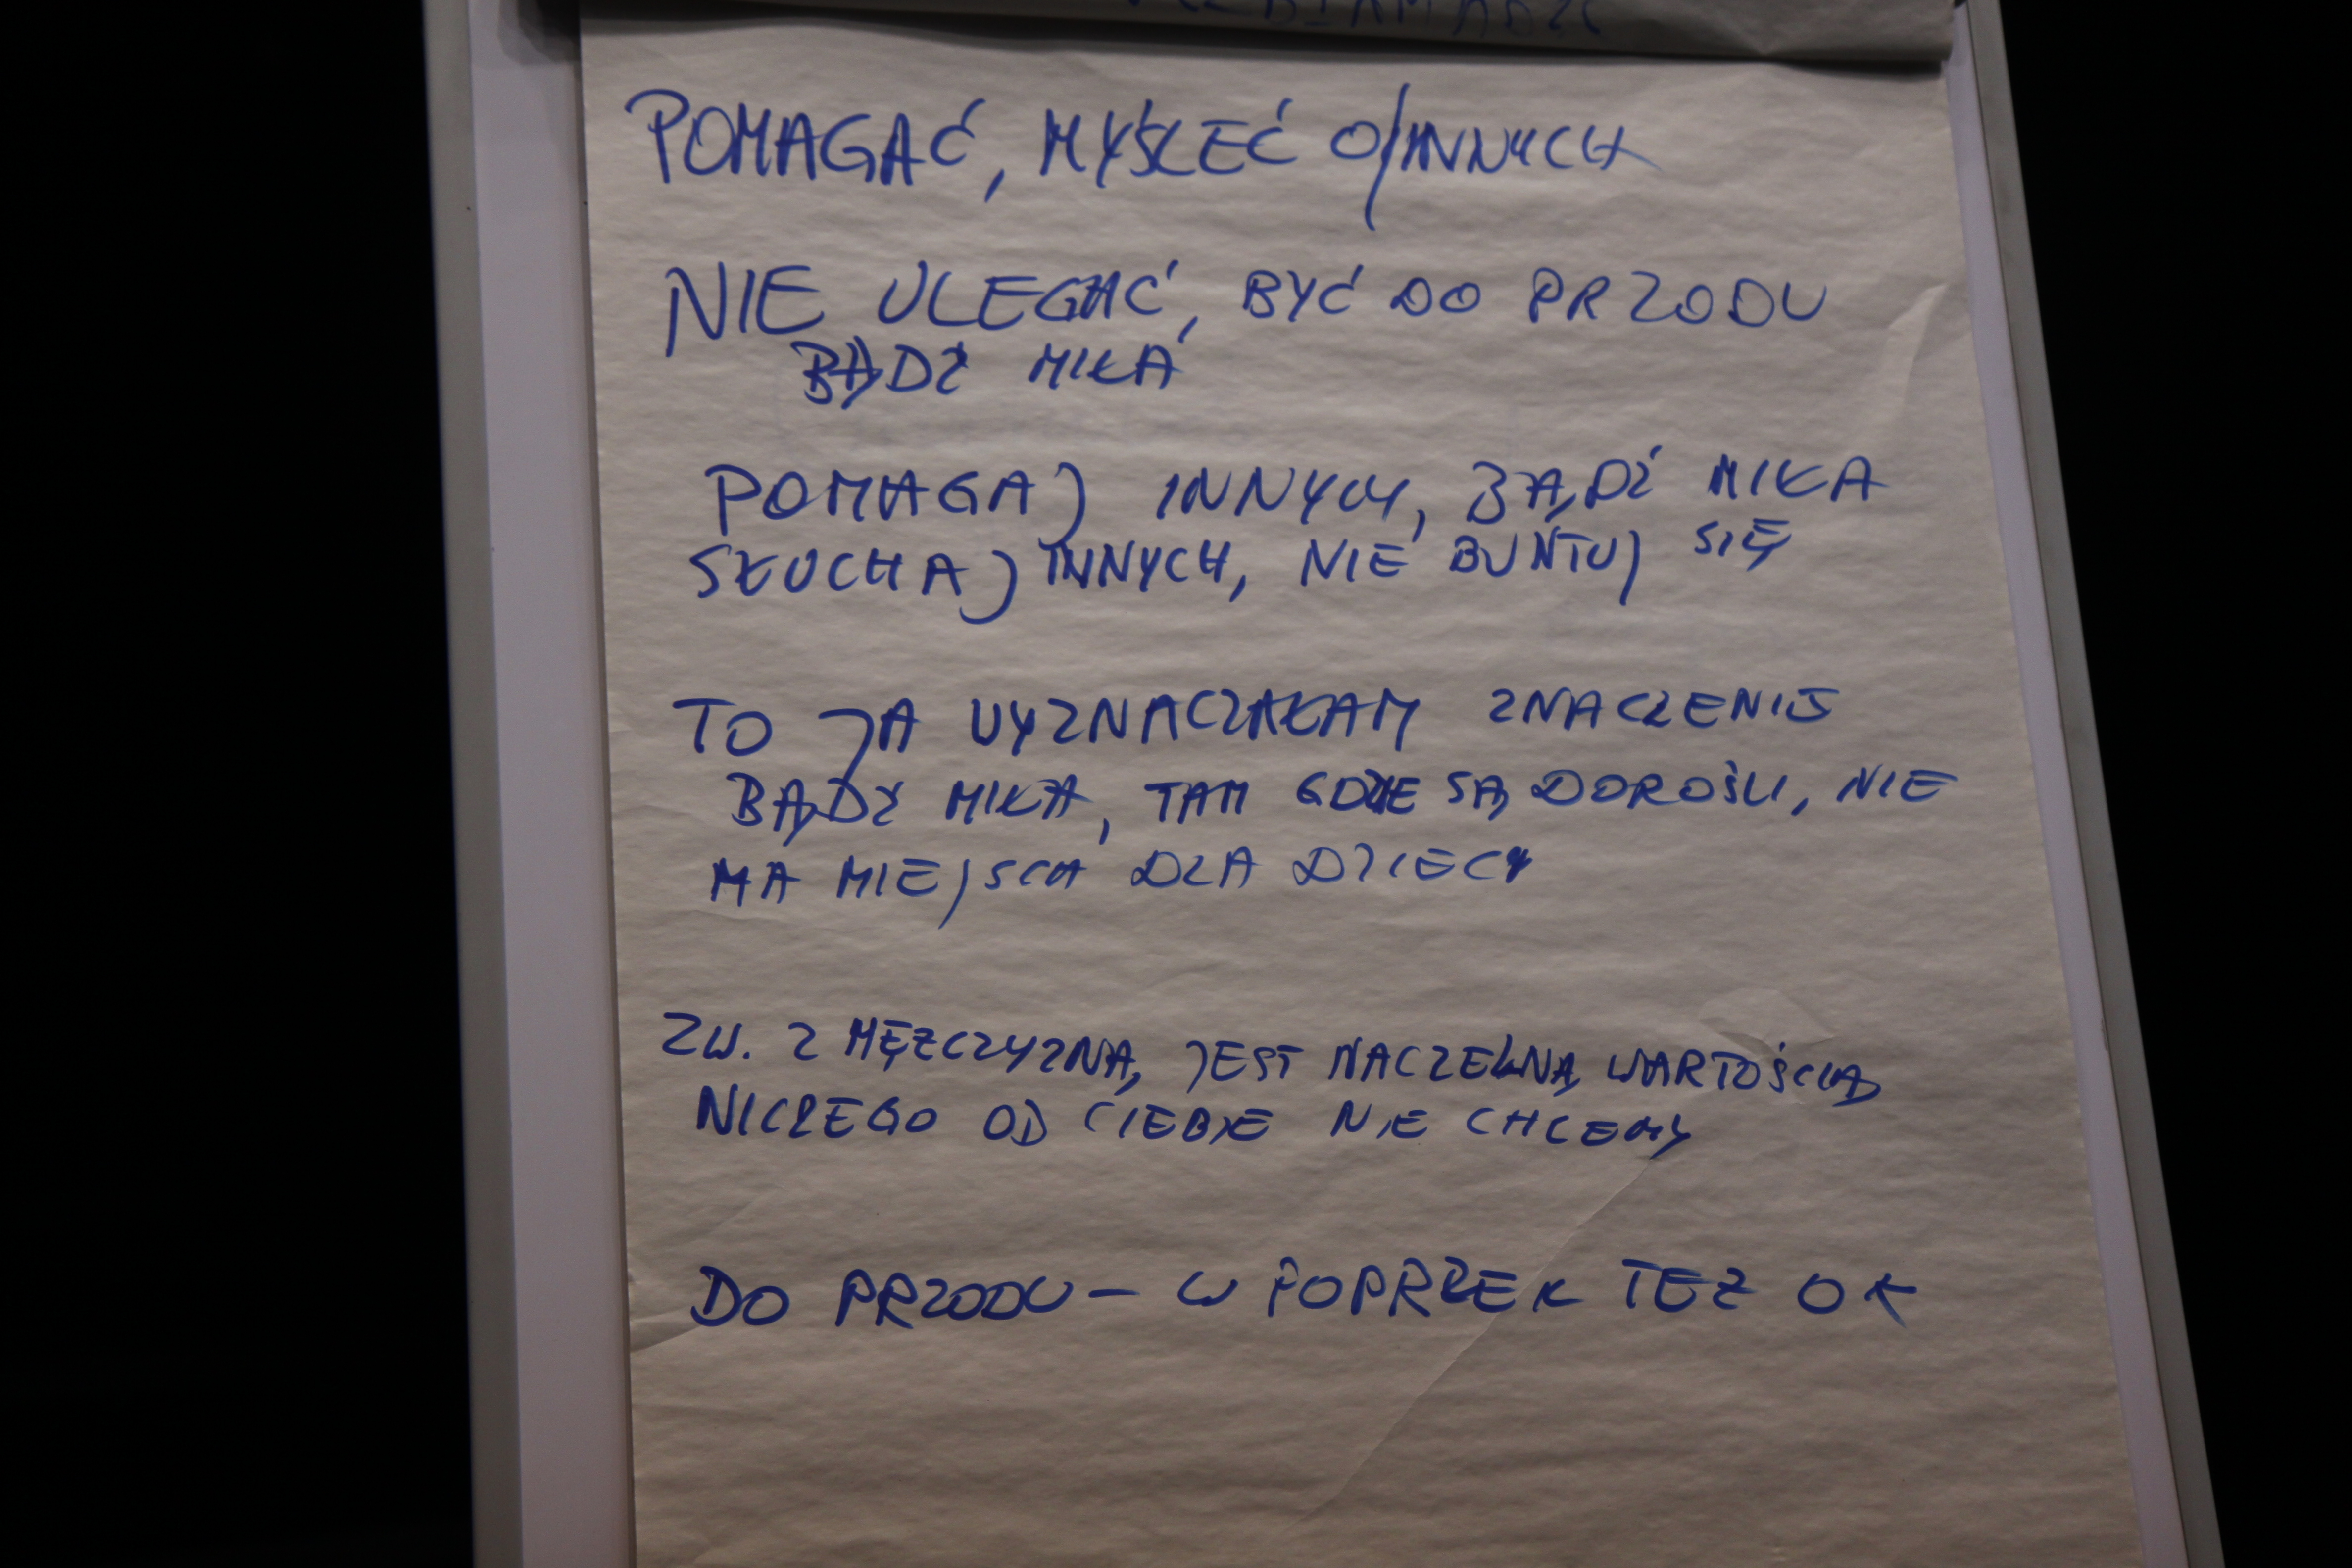 POMAGAĆ, MYŚLEĆ O/INNYCH
NIE ULEGAĆ, BYĆ DO PRZODU
BĄDŹ MIŁA
POMAGAJ INNYCH, BĄDŹ MIŁA
SŁUCHAJ INNYCH, NIE BUŃTUJ SIĘ
TO JA WYZNACZAŁAM
BĄDŹ MIŁA, TAM GDZIE SĄ DOROŚLI, NIE
MA MIEJSCA DLA DZIECI
ZW. Z MĘŻCZYZNĄ, JEST NACZELNĄ WARTOŚCIĄ
NICZEGO OD CIEBIE NIE CHCEMY
DO PRZODU – W POPRZEK TEŻ OK